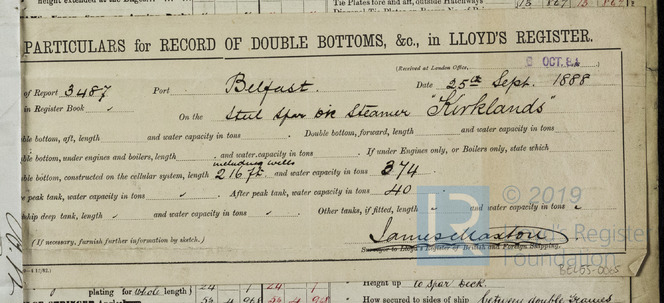 height extended at the
Tie Plates fore and aft, outside Hatchways
15 8.67 15 8.67
PARTICULARS for RECORD OF DOUBLE BOTTOMS, &c., in LLOYD'S REGISTER.
(Received at London Office,
OCT.
of Report 3487 Port Belfast. Date 25th Sept. 1888
in Register Book On the Steel Spar DK Steamer "Kirklands"
ble bottom, aft, length and water capacity in tons . Double bottom, forward, length and water capacity in tons
ble bottom, under engines and boilers, length . and water capacity in tons . If under Engines only, or Boilers only, state which
including wells
ble bottom, constructed on the cellular system, length 216 ft. and water capacity in tons 374
peak tank, water capacity in tons . After peak tank, water capacity in tons 40 .
ship deep tank, length and water capacity in tons . Other tanks, if fitted, length and water capacity in tons
(If necessary, furnish further information by sketch.)
James Maxton
Surveyor to Lloyd's Register of British and Foreign Shipping.
LR © 2019
Lloyd's Register
Foundation
BEL53-0065
plating for whole length) 24 1 24 1
Height up to Spar Deck.
How secured to sides of ship between double frames